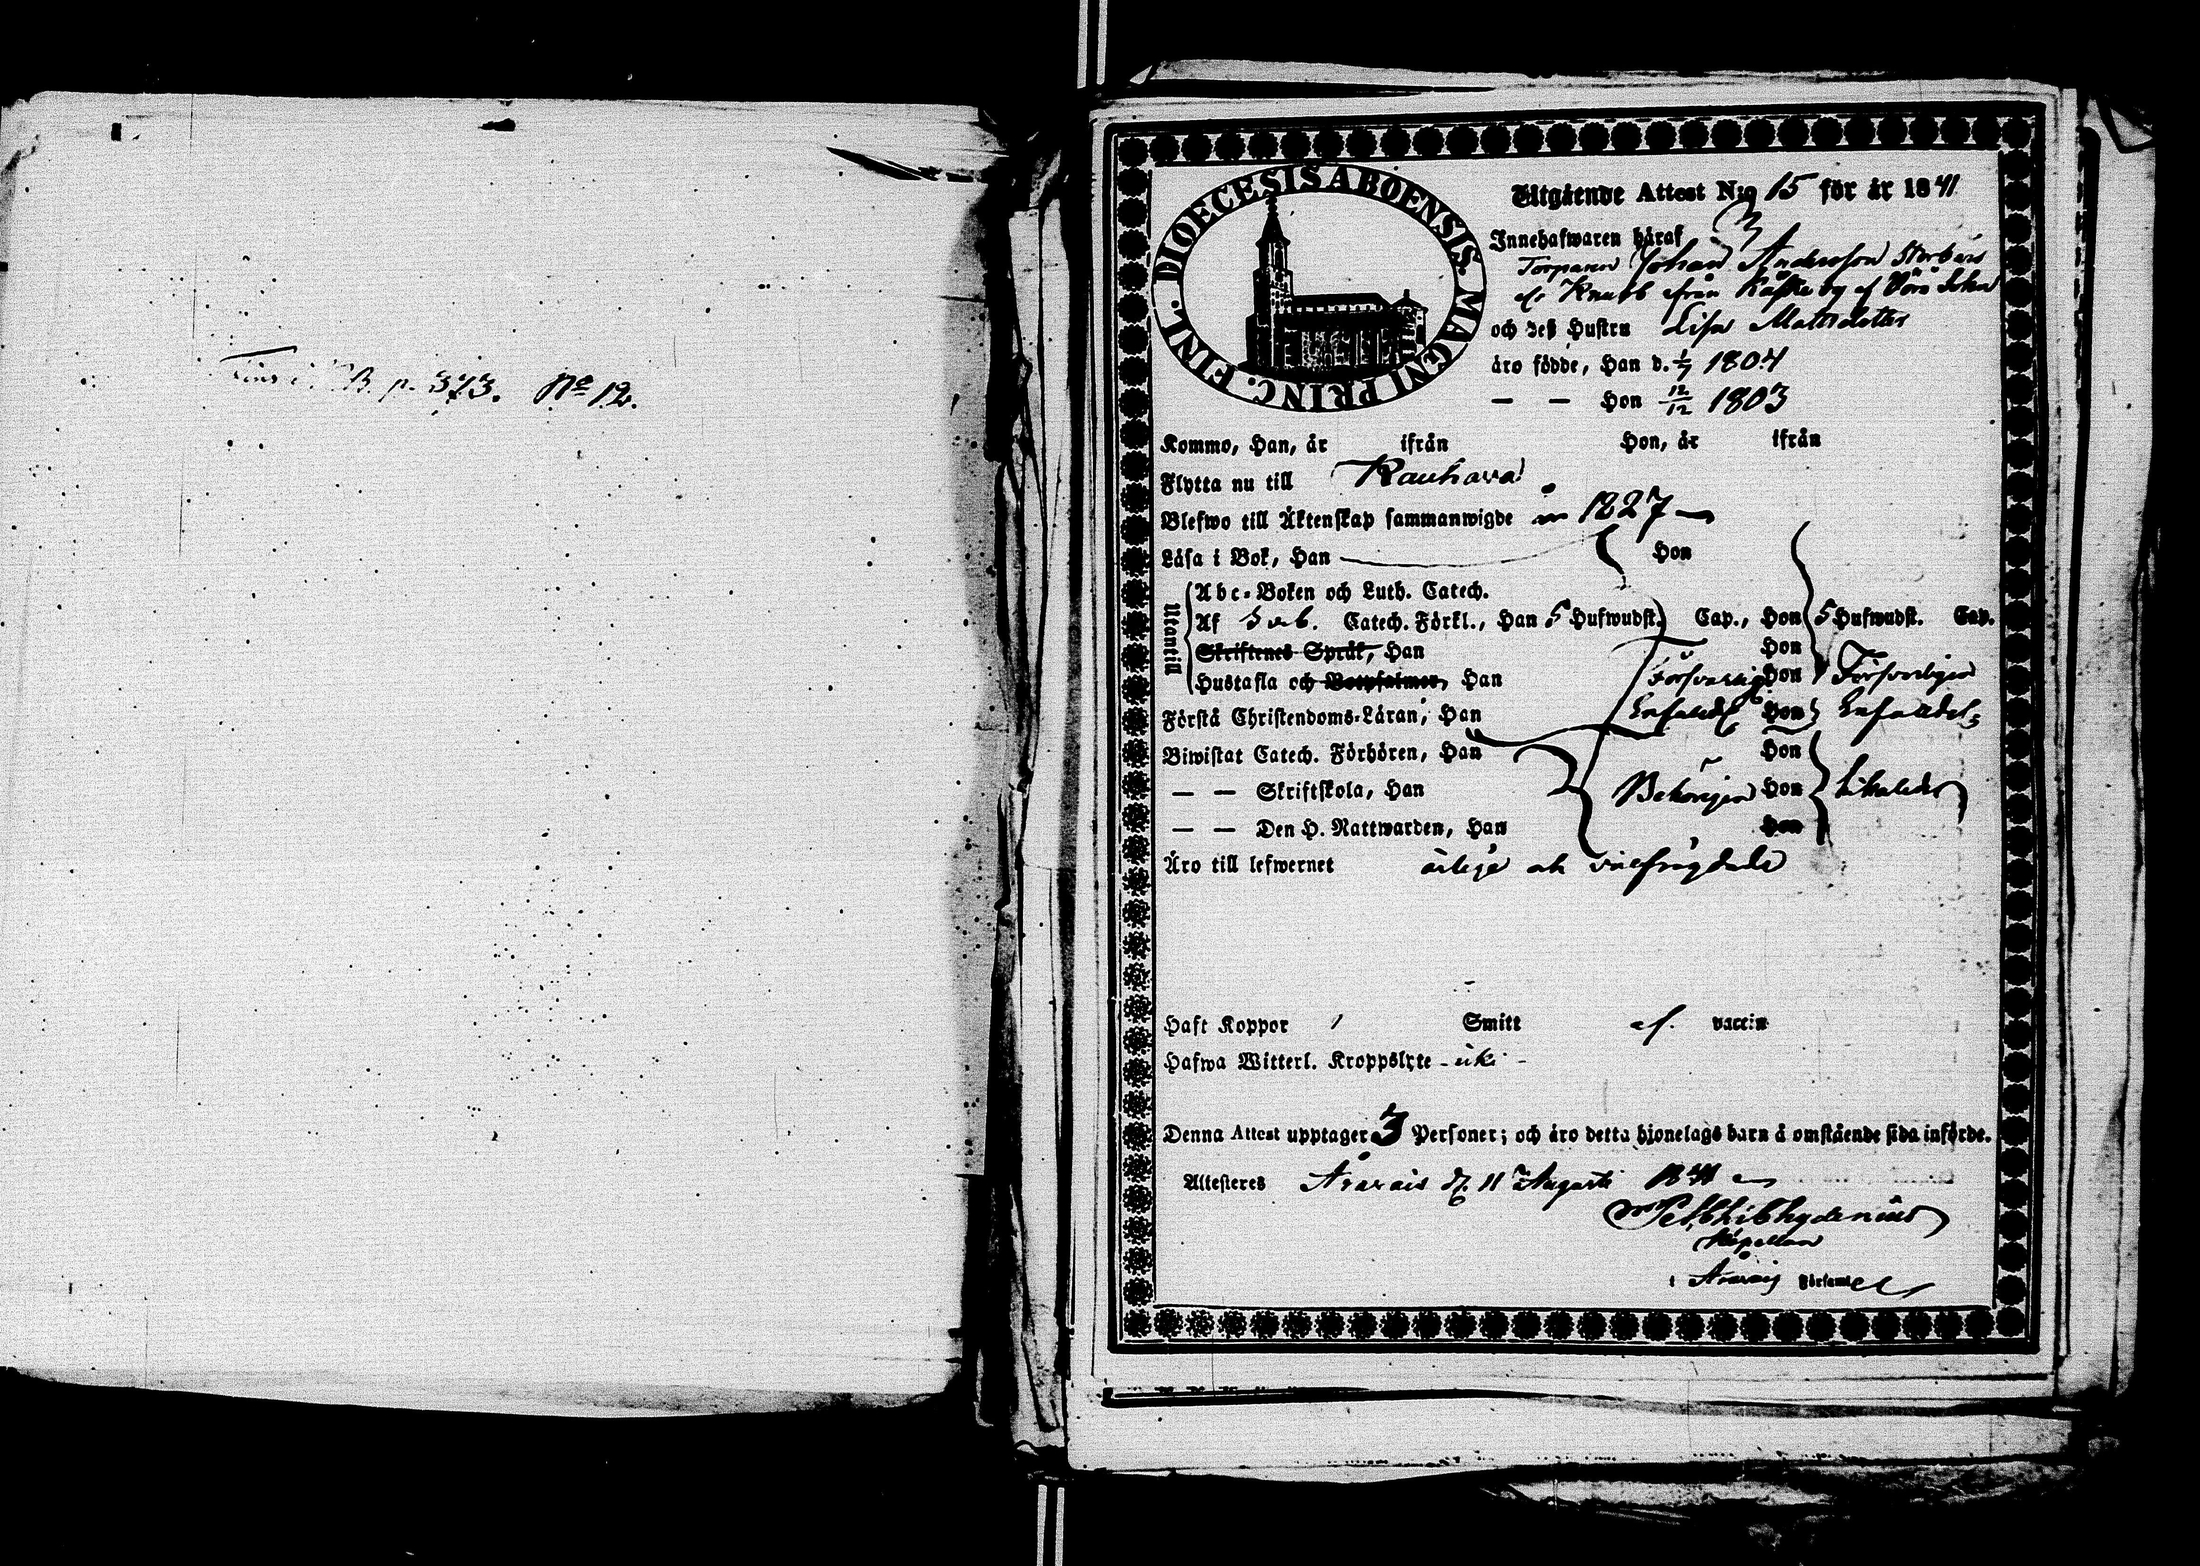 Fins i B. p. 373. No 12.
DIOECESIS ABOENSIS. MAGNI PRINC. FINL.
Utgående Attest N:o 15 för år 1841
Innehafwaren häraf
Torparen Johan Andersson
Knubb från af Vörå
och deß Hustru Lisa Mattsdotter
äro födde, Han d. 1/7 1804
— — Hon 12/12 1803
Kommo, Han, år ifrån Hon, år ifrån
Flytta nu till Kauhava
Blefwo till Äktenskap sammanwigde 1827
Läsa i Bok, Han Hon
Utantill
Abc-Boken och Luth. Catech.
Af Catech. Förkl., Han 5 Hufwudst. Cap., Hon 5 Hufwudst. Cap.
Skriftenes Språk, Han Hon
Hustafla och Botpsalmer, Han Försvarligen Hon Försvarligen
Förstå Christendoms-Läran, Han Enfaldel. Hon Enfaldel.
Biwistat Catech. Förhören, Han Hon
— — Skriftskola, Han Behörigen Hon likaledes
— — Den H. Nattwarden, Han Hon
Äro till lefwernet ärlige och välfrägdade
Haft Koppor Smitt af. vaccin
Hafwa Witterl. Kroppslyte - icke -
Denna Attest upptager 3 Personer; och äro detta hjonelags barn å omstående sida införde.
Attesteras d. 11 Augusti 1841
Kapellan
i Församl